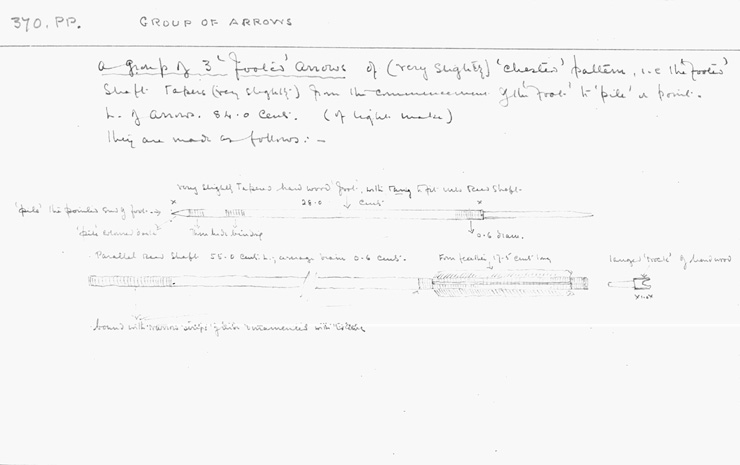 370. PP. GROUP OF ARROWS
A group of 3 'footed' arrows of (very slightly) 'chested' pattern, i.e. the 'footed'
shaft tapers (very slightly) from the commencement of the 'foot' to 'pile' or point.
L. of arrows. 84.0 cent. (of light make)
They are made as follows: –
very slightly tapered hard wood 'foot', with tang to fit into rear shaft.
x 28.0 cent x
'pile' the pointed end of foot
'pile' 0.6 diam.
Parallel rear shaft 55.0 cent. L., average diam 0.6 cent. Four feathers 17.5 cent long tanged 'nock' of hardwood
bound with narrow strips of skin ornamented with